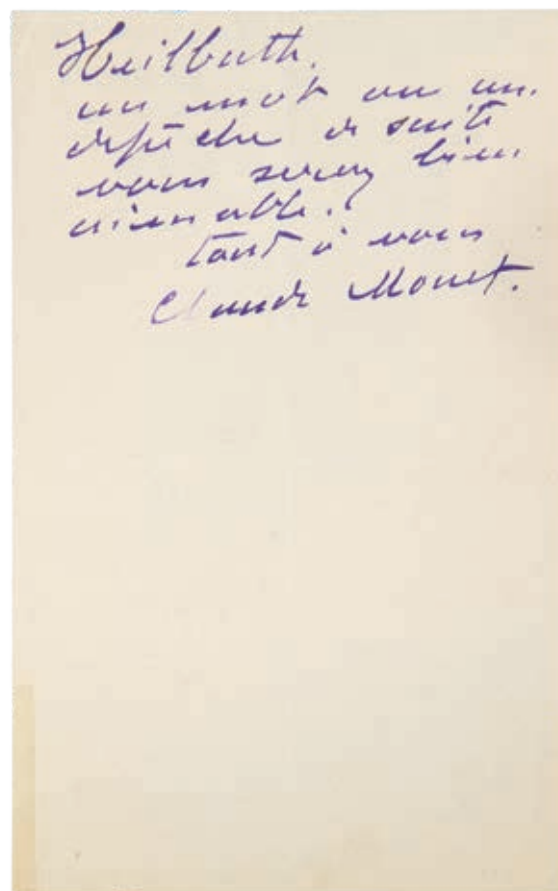 Heilbuth.
un mot ou un
dépêche de suite
vous serez bien
aimable.
tout à vous
Claude Monet.